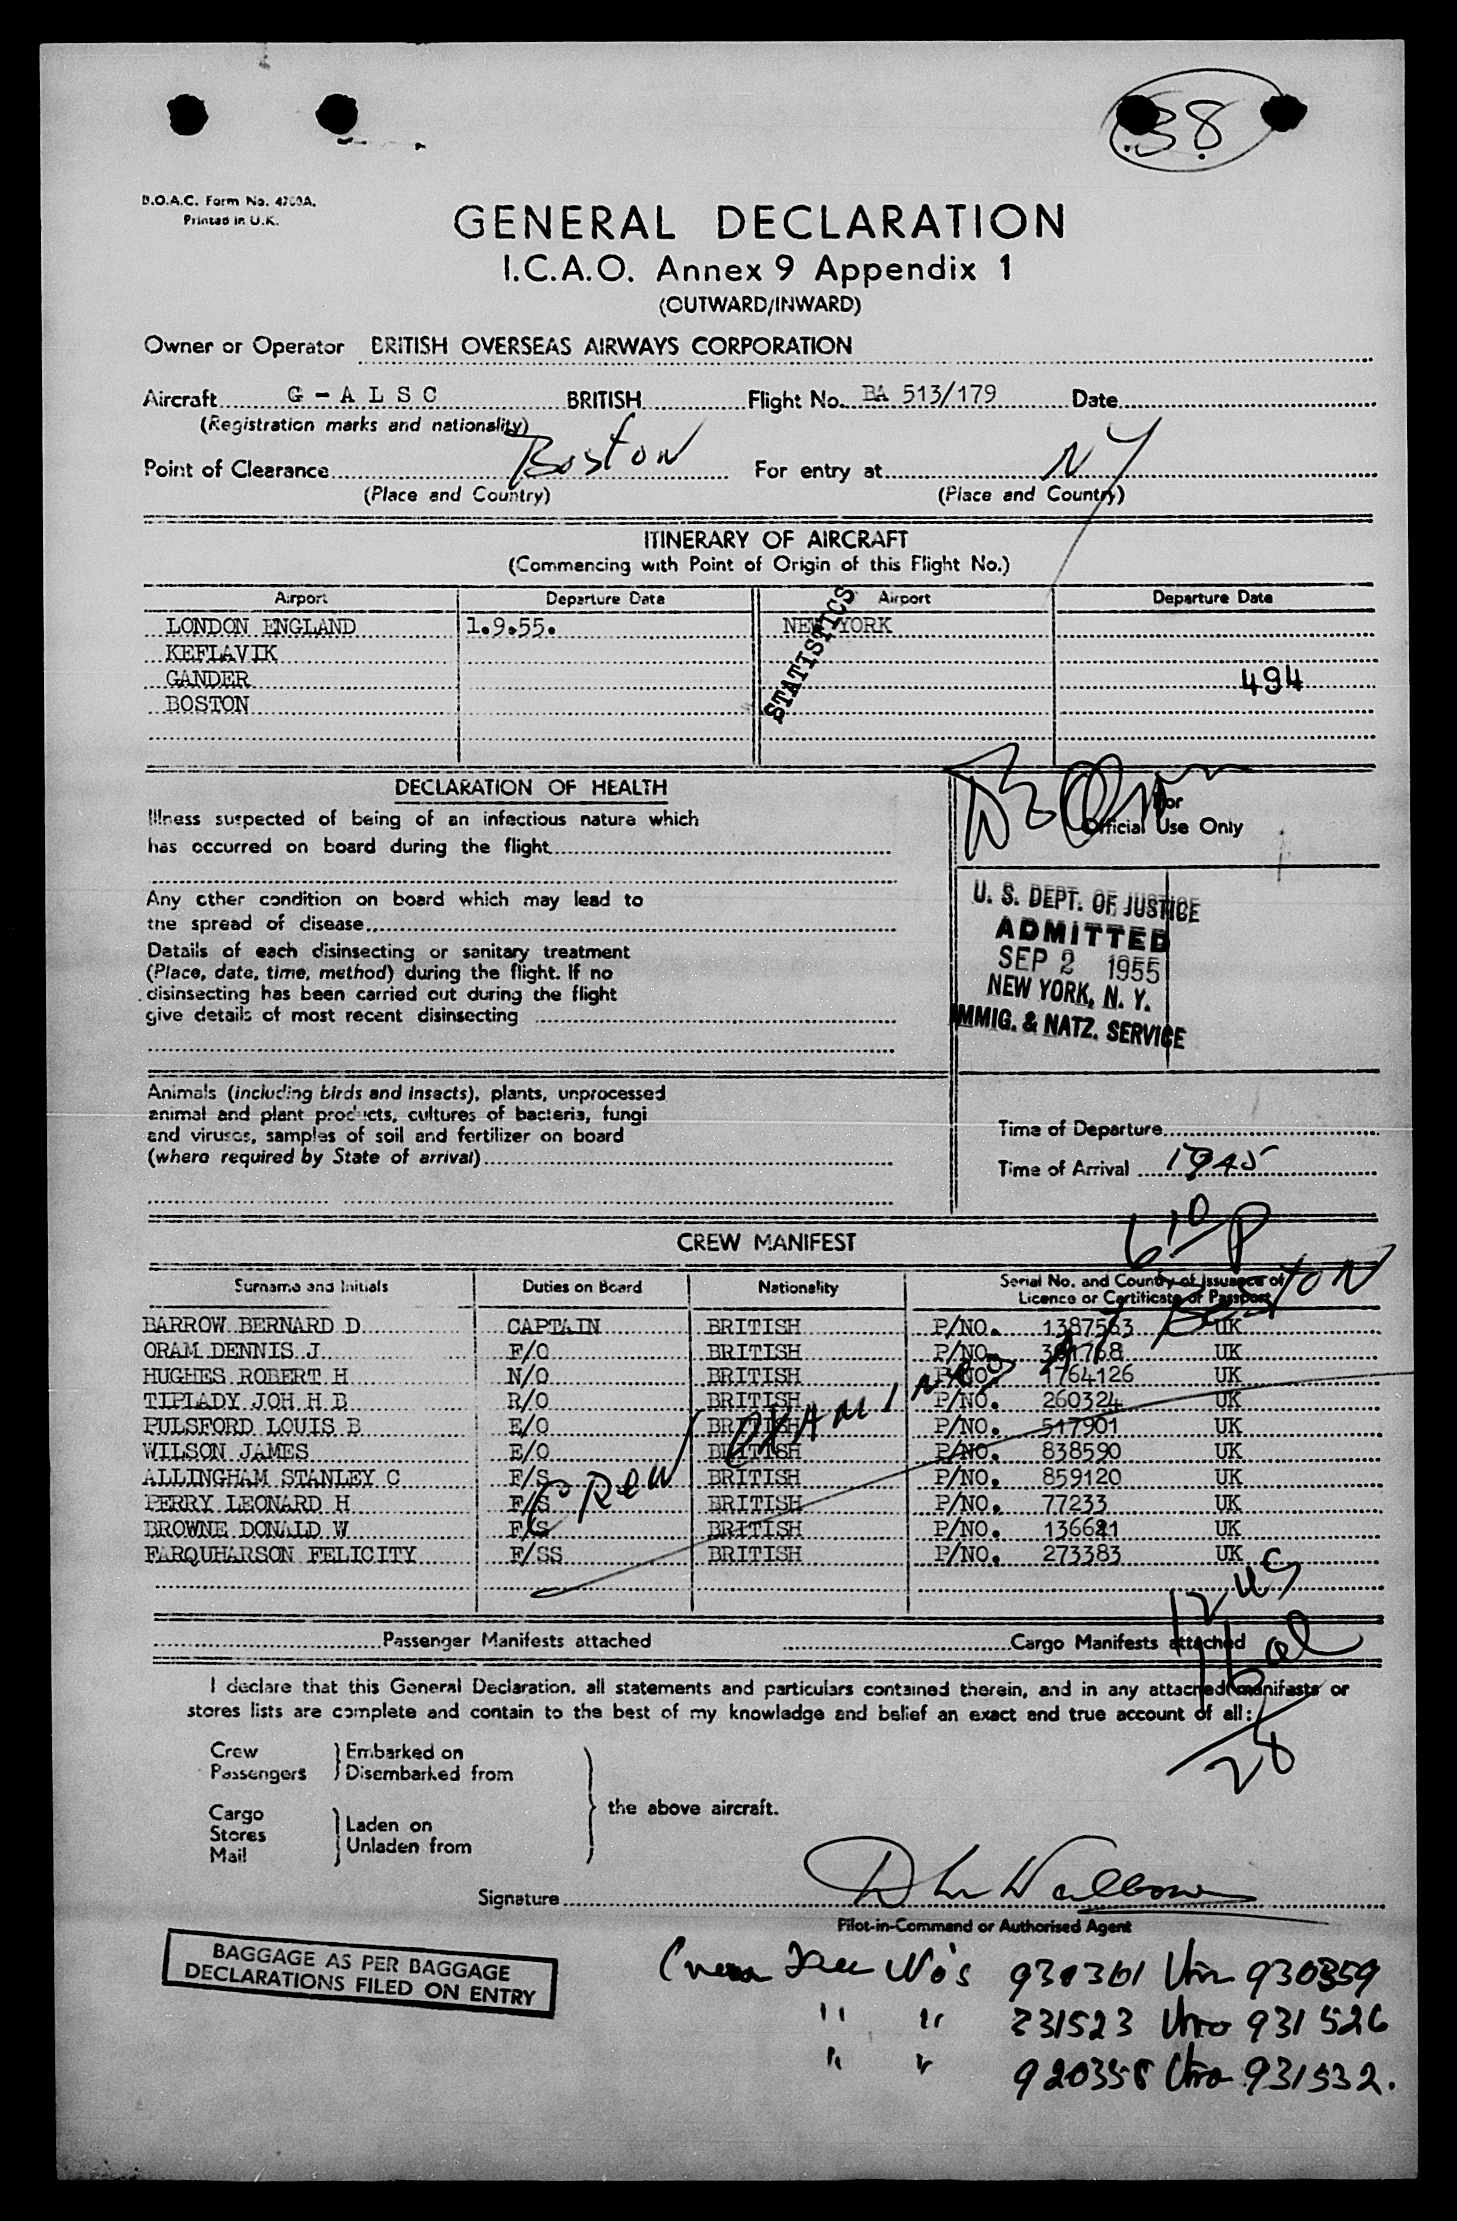 38
B.O.A.C. Form No. 4700A.
Printed in U.K.
GENERAL DECLARATION
I.C.A.O. Annex 9 Appendix 1
(OUTWARD/INWARD)
Owner or Operator BRITISH OVERSEAS AIRWAYS CORPORATION
Aircraft G - A L S C BRITISH Flight No. BA 513/179 Date
(Registration marks and nationality)
Point of Clearance Boston For entry at NY
(Place and Country) (Place and Country)
ITINERARY OF AIRCRAFT
(Commencing with Point of Origin of this Flight No.)
Airport Departure Date Airport Departure Date
LONDON ENGLAND 1.9.55. NEW YORK
KEFLAVIK
GANDER 494
BOSTON
STATISTICS
DECLARATION OF HEALTH
Illness suspected of being of an infectious nature which
has occurred on board during the flight
Any other condition on board which may lead to
the spread of disease
Details of each disinsecting or sanitary treatment
(Place, date, time, method) during the flight. If no
disinsecting has been carried out during the flight
give details of most recent disinsecting
For
Official Use Only
U. S. DEPT. OF JUSTICE
ADMITTED
SEP 2 1955
NEW YORK, N. Y.
IMMIG. & NATZ. SERVICE
Animals (including birds and insects), plants, unprocessed
animal and plant products, cultures of bacteria, fungi
and viruses, samples of soil and fertilizer on board
(where required by State of arrival)
Time of Departure
Time of Arrival 1945
610 P
CREW MANIFEST
Surname and Initials Duties on Board Nationality Serial No. and Country of Issuance of
Licence or Certificate or Passport
BARROW BERNARD D CAPTAIN BRITISH P/NO. 1387563 UK
ORAM DENNIS J F/O BRITISH P/NO. 301768 UK
HUGHES ROBERT H N/O BRITISH P/NO. 1764126 UK
TIPLADY JOH H B R/O BRITISH P/NO. 260324 UK
PULSFORD LOUIS B E/O BRITISH P/NO. 517901 UK
WILSON JAMES E/O BRITISH P/NO. 838590 UK
ALLINGHAM STANLEY C F/S BRITISH P/NO. 859120 UK
PERRY LEONARD H F/S BRITISH P/NO. 77233 UK
BROWNE DONALD W F/S BRITISH P/NO. 136621 UK
FARQUHARSON FELICITY F/SS BRITISH P/NO. 273383 UK
Crew Examined at Boston
12 US
Passenger Manifests attached Cargo Manifests attached
28
I declare that this General Declaration, all statements and particulars contained therein, and in any attached manifests or
stores lists are complete and contain to the best of my knowledge and belief an exact and true account of all:
Crew Embarked on
Passengers Disembarked from
the above aircraft.
Cargo
Stores Laden on
Mail Unladen from
Signature
Pilot-in-Command or Authorised Agent
BAGGAGE AS PER BAGGAGE
DECLARATIONS FILED ON ENTRY
No's 930361 930359
" " 231523 931526
" " 920358 931532.